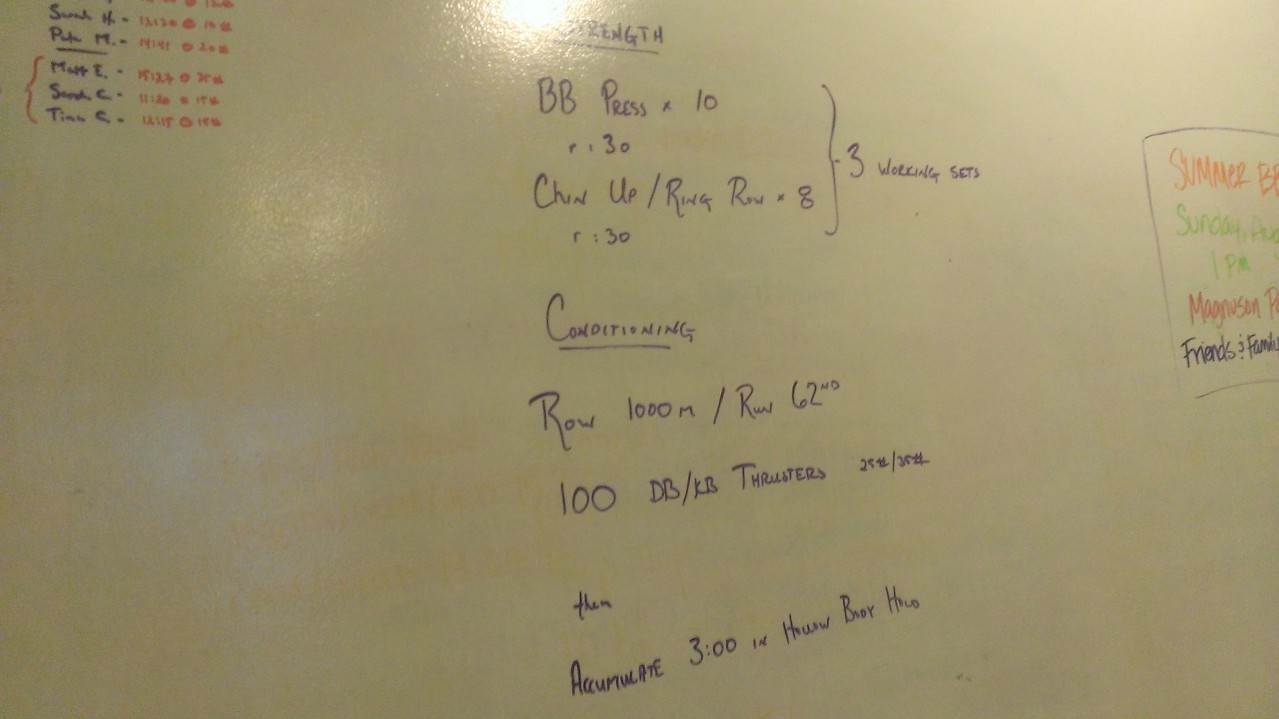 Sarah H. - 13:20 @ 10#
Pete M. - 14:41 @ 20#
Matt E. - 15:27 @ 25#
Sarah C. - 11:20 @ 15#
Tina C. - 12:15 @ 15#
STRENGTH
BB PRESS x 10
r :30
CHIN UP / RING ROW x 8
r :30
3 WORKING SETS
CONDITIONING
ROW 1000 M / RUN 62ND
100 DB/KB THRUSTERS 25#/35#
then
ACCUMULATE 3:00 IN HOLLOW BODY HOLD
SUMMER
Sunday,
1 PM
Magnuson
Friends & Family